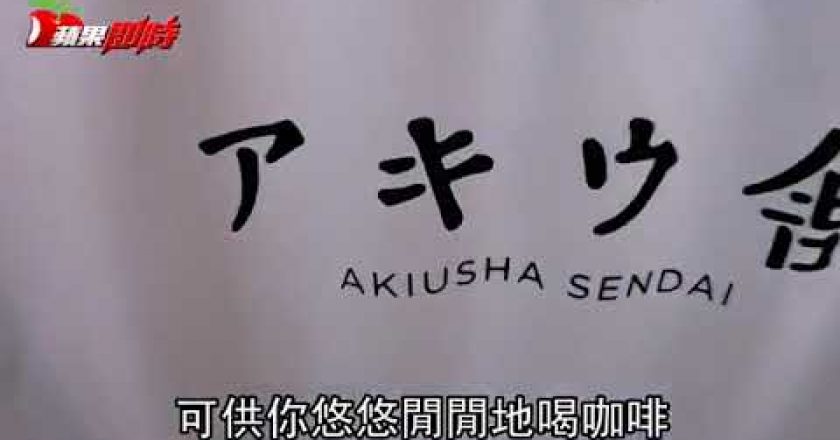 蘋果即時
アキウ舎
AKIUSHA SENDAI
可供你悠悠閒閒地喝咖啡